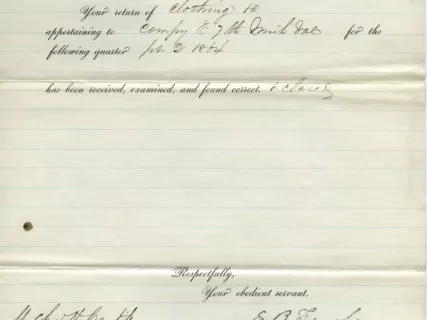 Your return of clothing &c
appertaining to Compy E 7th Mich Vols for the
following quarter pt 2 1864
has been received, examined, and found correct. & closed
Respectfully,
Your obedient servant,